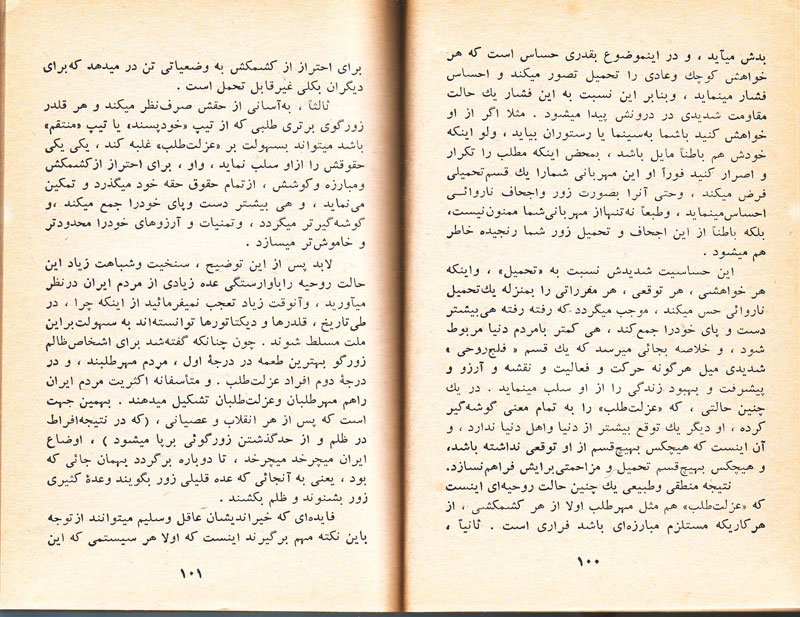 بدش میآید ، و در اینموضوع بقدری حساس است که هر
خواهش کوچك وعادی را تحمیل تصور میکند و احساس
فشار مینماید ، وبنابر این نسبت به این فشار یك حالت
مقاومت شدیدی در درونش پیدا میشود . مثلا اگر از او
خواهش کنید باشما به‌سینما یا رستوران بیاید ، ولو اینکه
خودش هم باطناً مایل باشد ، بمحض اینکه مطلب را تکرار
و اصرار کنید فوراً او این مهربانی شمارا یك قسم‌تحمیلی
فرض میکند ، وحتی آنرا بصورت زور واجحاف ناروائی
احساس‌مینماید ، وطبعاً نه‌تنهااز مهربانی‌شما ممنون‌نیست،
بلکه باطناً از این اجحاف و تحمیل زور شما رنجیده خاطر
هم میشود .
این حساسیت شدیدش نسبت به «تحمیل» ، واینکه
هر خواهشی ، هر توقعی ، هر مقرراتی را بمنزله یك‌تحمیل
ناروائی حس میکند ، موجب میگردد که رفته رفته هی‌بیشتر
دست و پای خودرا جمع‌کند ، هی کمتر بامردم دنیا مربوط
شود ، و خلاصه بجائی میرسد که یك قسم « فلج‌روحی »
شدیدی میل هرگونه حرکت و فعالیت و نقشه و آرزو و
پیشرفت و بهبود زندگی را از او سلب مینماید . در یك
چنین حالتی ، که «عزلت‌طلب» را به تمام معنی گوشه‌گیر
کرده ، او دیگر یك توقع بیشتر از دنیا واهل دنیا ندارد ، و
آن اینست که هیچکس بهیچ‌قسم از او توقعی نداشته باشد،
و هیچکس بهیچ‌قسم تحمیل و مزاحمتی‌برایش فراهم‌نسازد.
نتیجه منطقی وطبیعی یك چنین حالت روحیه‌ای اینست
که «عزلت‌طلب» هم مثل مهرطلب اولا از هر کشمکشی ، از
هرکاریکه مستلزم مبارزه‌ای باشد فراری است . ثانیاً ،
۱۰۰
برای احتراز از کشمکش به وضعیاتی تن در میدهد که‌برای
دیگران بکلی غیرقابل تحمل است .
ثالثاً ، به‌آسانی از حقش صرف‌نظر میکند و هر قلدر
زورگوی برتری طلبی که از تیپ «خودپسند» یا تیپ «منتقم»
باشد میتواند بسهولت بر «عزلت‌طلب» غلبه کند ، یکی یکی
حقوقش را ازاو سلب نماید ، واو ، برای احتراز ازکشمکش
ومبارزه وکوشش ، ازتمام حقوق حقه خود میگذرد و تمکین
می‌نماید ، و هی بیشتر دست وپای خودرا جمع میکند ،و
گوشه‌گیرتر میگردد ، وتمنیات و آرزوهای خودرا محدودتر
و خاموش‌تر میسازد .
لابد پس از این توضیح ، سنخیت وشباهت زیاد این
حالت روحیه راباوارستگی عده زیادی از مردم ایران درنظر
میآورید ، وآنوقت زیاد تعجب نمیفرمائید از اینکه چرا ، در
طی‌تاریخ ، قلدرها و دیکتاتورها توانسته‌اند به سهولت‌براین
ملت مسلط شوند . چون چنانکه گفته‌شد برای اشخاص‌ظالم
زورگو بهترین طعمه در درجهٔ اول ، مردم مهرطلبند ، و در
درجهٔ دوم افراد عزلت‌طلب . و متأسفانه اکثریت مردم ایران
راهم مهرطلبان وعزلت‌طلبان تشکیل میدهند . بهمین جهت
است که پس از هر انقلاب و عصیانی ، (که در نتیجه‌افراط
در ظلم و از حدگذشتن زورگوئی برپا میشود ) ، اوضاع
ایران میچرخد میچرخد ، تا دوباره برگردد بهمان جائی که
بود ، یعنی به آنجائی که عده قلیلی زور بگویند وعدهٔ کثیری
زور بشنوند و ظلم بکشند .
فایده‌ای که خیراندیشان عاقل وسلیم میتوانند ازتوجه
باین نکته مهم برگیرند اینست که اولا هر سیستمی که این
۱۰۱